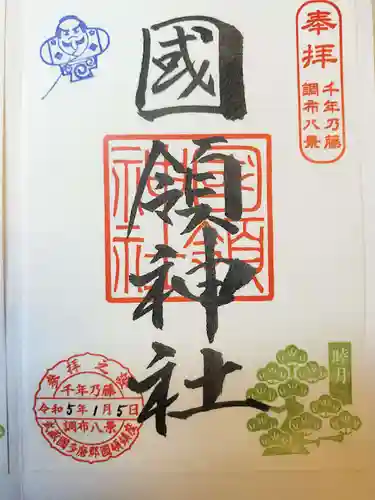 奉拝
千年乃藤
調布八景
國領神社
國領神社
睦月
参拝之証
千年乃藤
令和5年1月5日
調布八景
武蔵國多磨郡國領鎮座